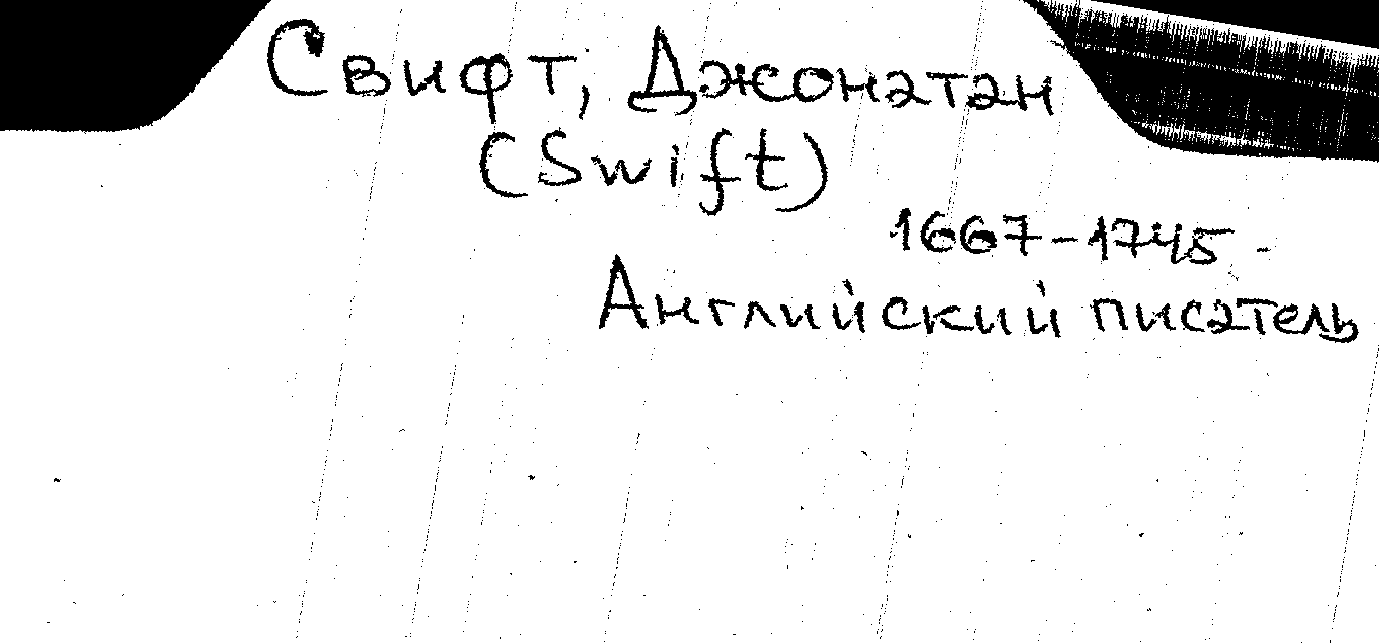 Свифт, Джонатан
(Swift)
1667-1745 -
Английский писатель